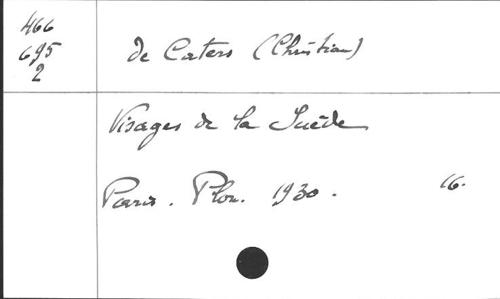 466
695
2
de Caters (Christian)
Visages de la Suède
Paris. Plon. 1930. 16.